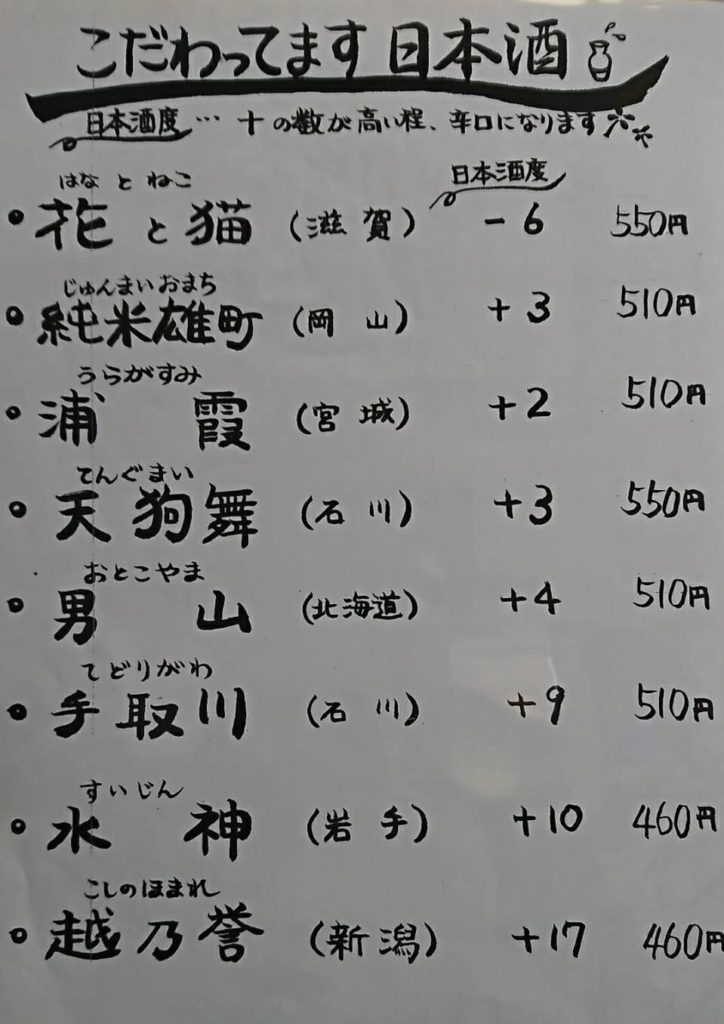 こだわってます日本酒
日本酒度…＋の数が高い程、辛口になります
日本酒度
はなとねこ
・花と猫(滋賀) －6 550円
じゅんまいおまち
・純米雄町(岡山) +3 510円
うらがすみ
・浦霞(宮城) +2 510円
てんぐまい
・天狗舞(石川) +3 550円
おとこやま
・男山(北海道) +4 510円
てどりがわ
・手取川(石川) +9 510円
すいじん
・水神(岩手) +10 460円
こしのほまれ
・越乃誉(新潟) +17 460円